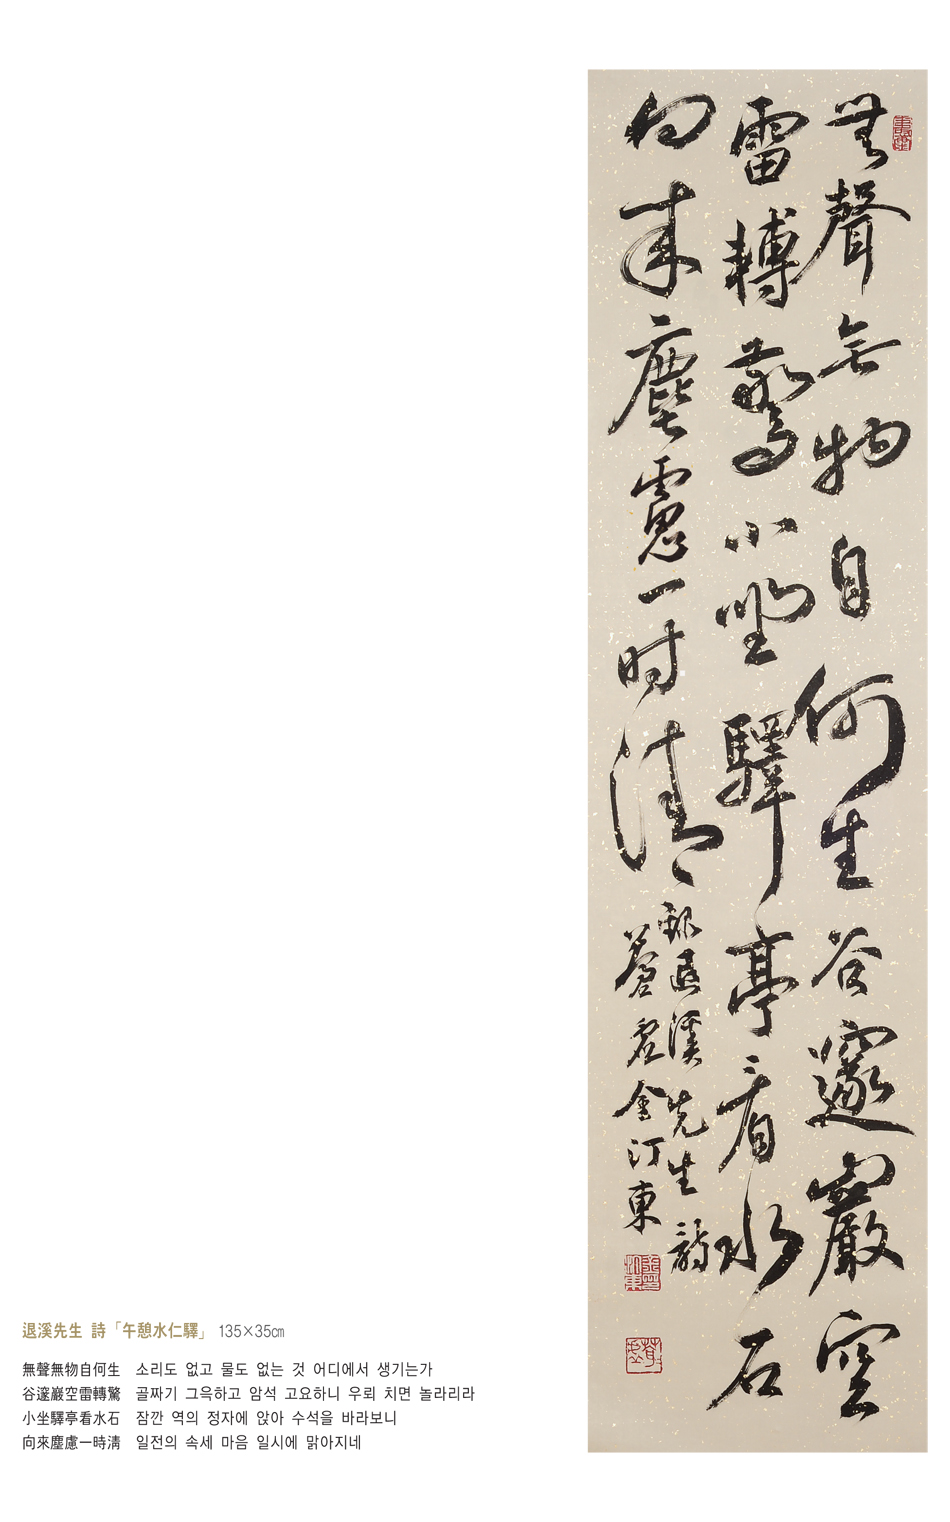 無聲無物自何生谷邃巖空
雷轉驚小坐驛亭看水石
向來塵慮一時清
錄退溪先生詩
蒼虛金汀東
退溪先生 詩「午憩水仁驛」 135×35㎝
無聲無物自何生 소리도 없고 물도 없는 것 어디에서 생기는가
谷邃巖空雷轉驚 골짜기 그윽하고 암석 고요하니 우뢰 치면 놀라리라
小坐驛亭看水石 잠깐 역의 정자에 앉아 수석을 바라보니
向來塵慮一時淸 일전의 속세 마음 일시에 맑아지네